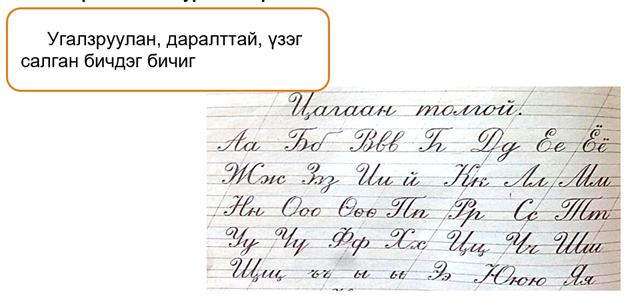 Угалзруулан, даралттай, үзэг
салган бичдэг бичиг
Цагаан толгой.
Аа Бб Ввв Гг Дд Ее Ёё
Жж Ззз Ии й Кк Лл Мм
Нн Ооо Өөө Пп Рр Сс Тт
Уу Үү Фф Хх Цц Чч Шш
Щщ ъъ ы ьь Ээ Ююю Яя